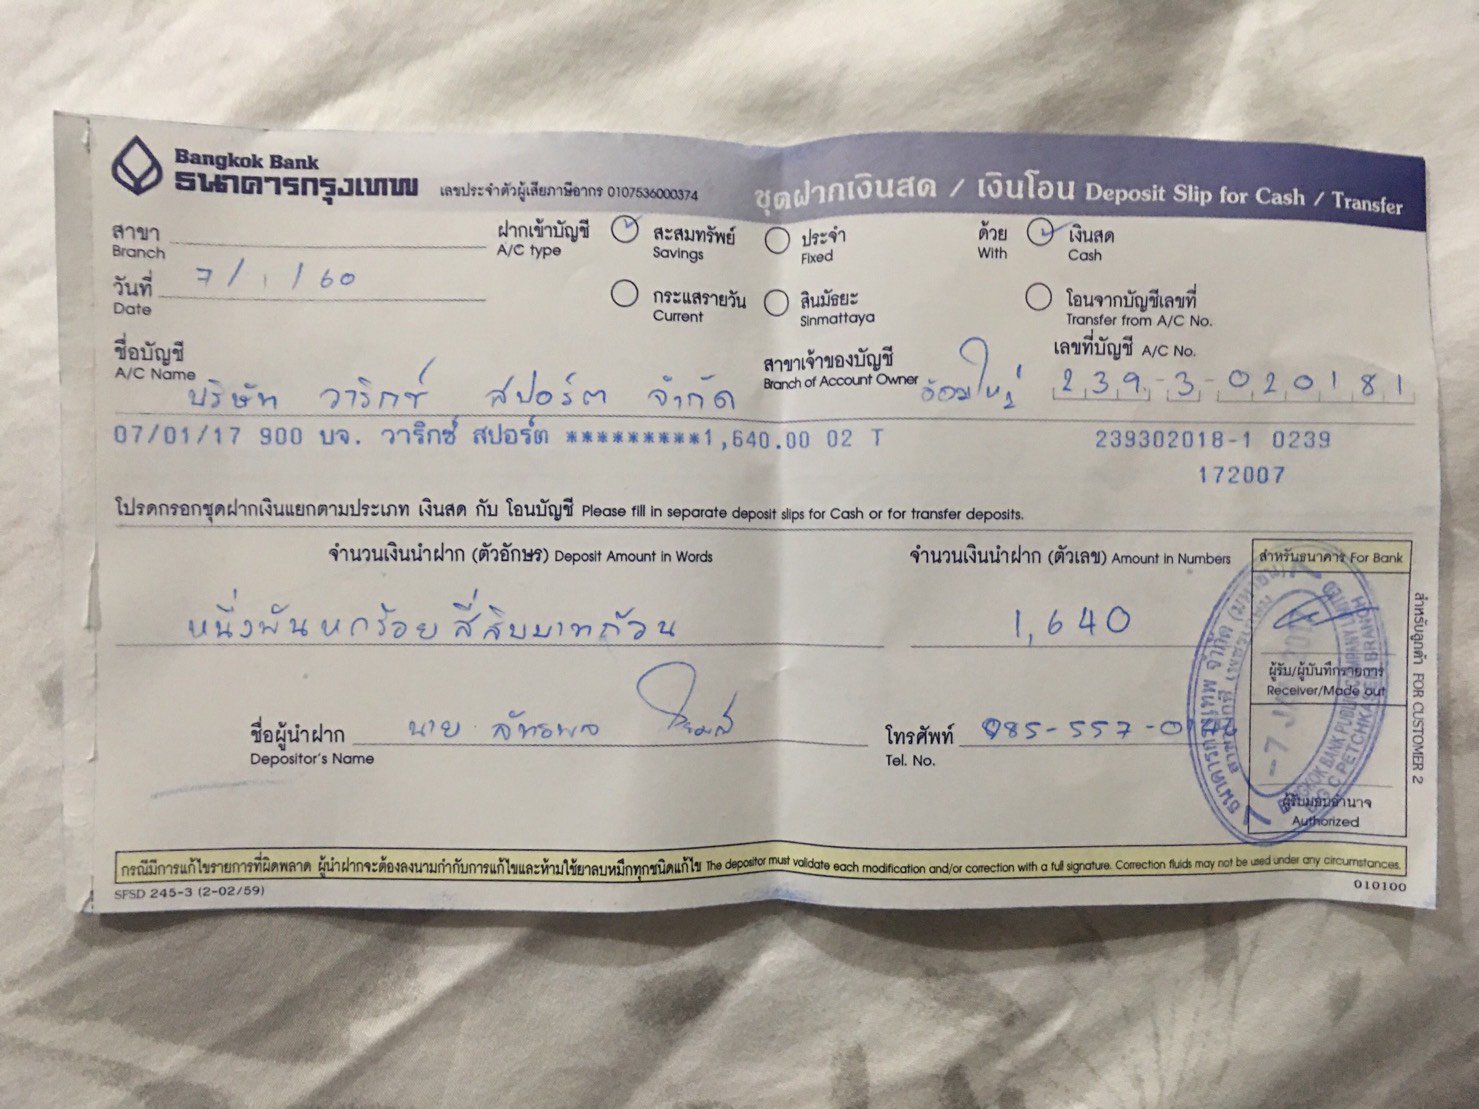 Bangkok Bank
ธนาคารกรุงเทพ เลขประจำตัวผู้เสียภาษีอากร 0107536000374
ชุดฝากเงินสด / เงินโอน Deposit Slip for Cash / Transfer
สาขา
Branch
วันที่ 7/1/60
Date
ฝากเข้าบัญชี
A/C type
สะสมทรัพย์
Savings
ประจำ
Fixed
กระแสรายวัน
Current
สินมัธยะ
Sinmattaya
ด้วย
With
เงินสด
Cash
โอนจากบัญชีเลขที่
Transfer from A/C No.
ชื่อบัญชี
A/C Name
บริษัท วาริกซ์ สปอร์ต จำกัด
สาขาเจ้าของบัญชี
Branch of Account Owner อ้อมใหญ่
เลขที่บัญชี A/C No.
239-3-020181
07/01/17 900 บจ. วาริกซ์ สปอร์ต *********1,640.00 02 T 239302018-1 0239
172007
โปรดกรอกชุดฝากเงินแยกตามประเภท เงินสด กับ โอนบัญชี Please fill in separate deposit slips for Cash or for transfer deposits.
จำนวนเงินนำฝาก (ตัวอักษร) Deposit Amount in Words
จำนวนเงินนำฝาก (ตัวเลข) Amount in Numbers
สำหรับธนาคาร For Bank
หนึ่งพันหกร้อยสี่สิบบาทถ้วน
1,640
ผู้รับ/ผู้บันทึกรายการ
Receiver/Made out
ชื่อผู้นำฝาก นาย
Depositor's Name
โทรศัพท์ 085-557-
Tel. No.
ผู้รับมอบอำนาจ
Authorized
สำหรับลูกค้า FOR CUSTOMER 2
ธนาคารกรุงเทพ จำกัด (มหาชน)
-7
BANGKOK BANK PUBLIC COMPANY LIMITED
BIG C PETCHKASEM BRANCH
กรณีมีการแก้ไขรายการที่ผิดพลาด ผู้นำฝากจะต้องลงนามกำกับการแก้ไขและห้ามใช้ยาลบหมึกทุกชนิดแก้ไข The depositor must validate each modification and/or correction with a full signature. Correction fluids may not be used under any circumstances.
SFSD 245-3 (2-02/59)
010100